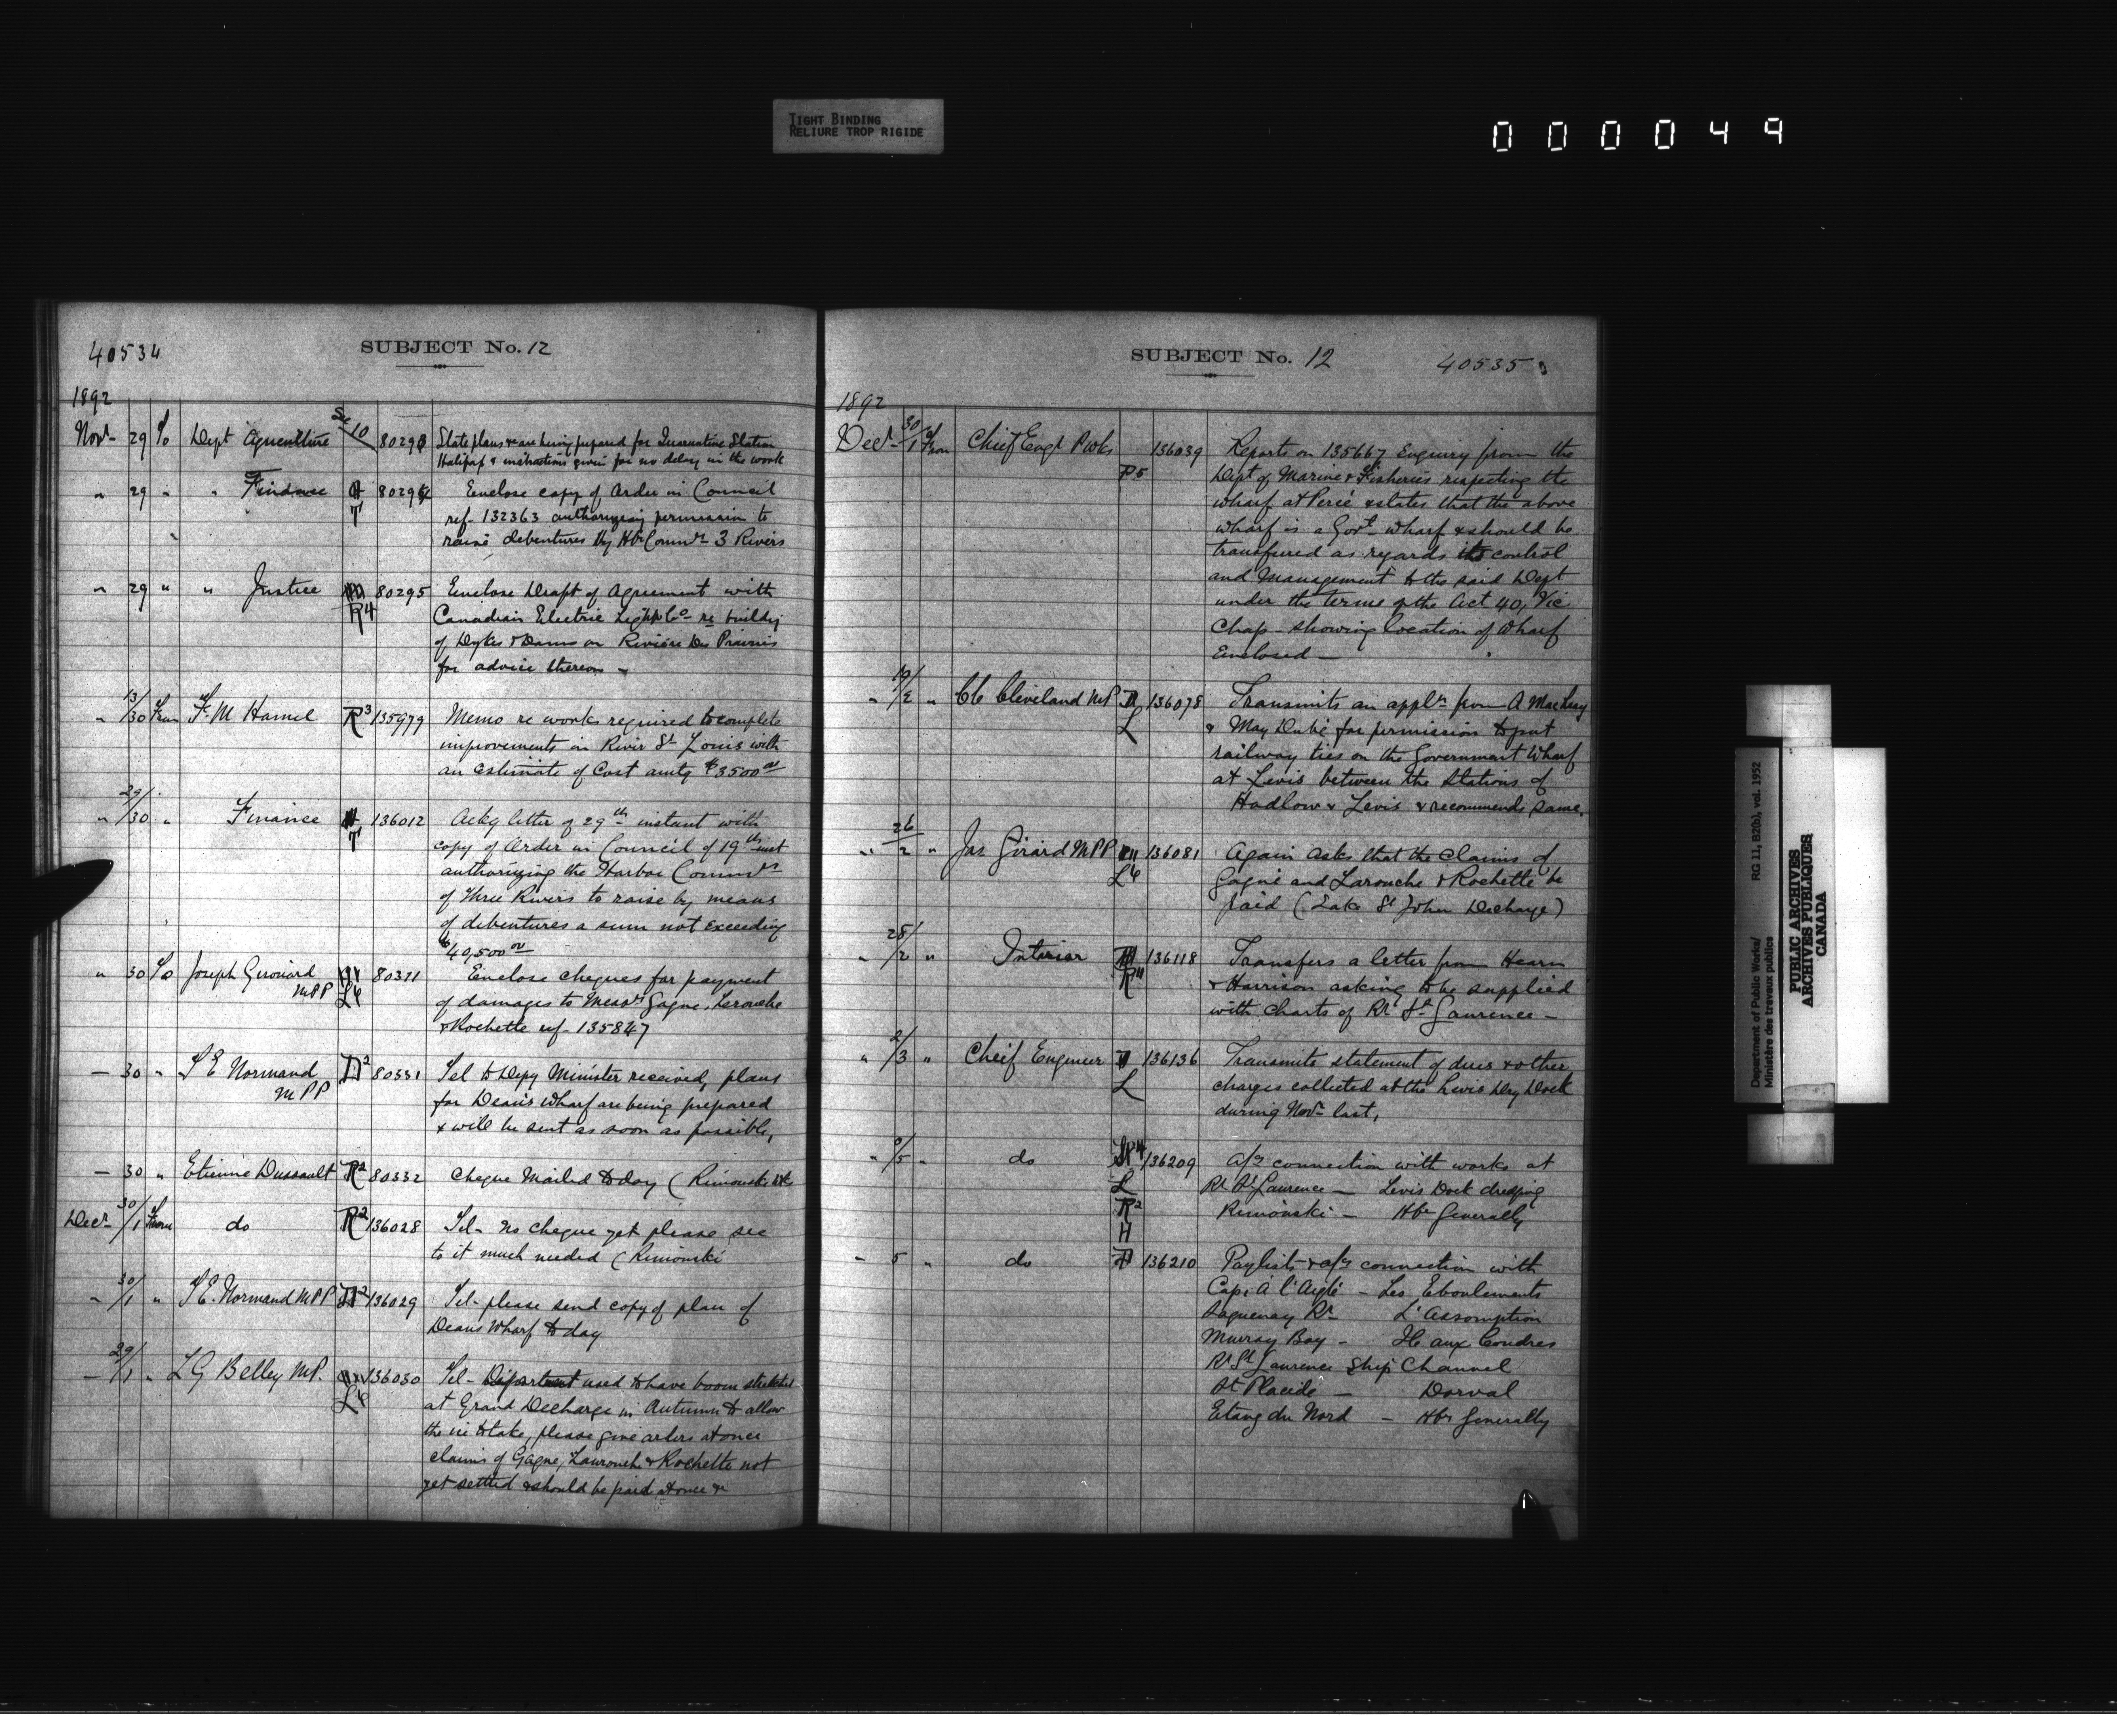 TIGHT BINDING
RELIURE TROP RIGIDE
000049
40534
SUBJECT No. 12
1892
Novr 29 To Dept Agriculture 10 8029
State plans are being prepared for Quarantine Station
Halifax & instructions given for no delay in the work
" 29 " " Finance T 8029
Enclose copy of Order in Council
ref. 132363 authorizing permission to
raise debentures by Hbr Commrs 3 Rivers
" 29 " " Justice R4 80295
Enclose Draft of Agreement with
Canadian Electric Light Co re building
of Dykes & Dams on Rivière Des Prairies
for advice thereon
" 13/30 From F. M Hamel R3 135979
Memo re works required to complete
improvements in River St Louis with
an estimate of cost amtg $3500 00
" 29/30 " Finance T 136012
Ackg letter of 29th instant with
copy of Order in Council of 19th inst
authorizing the Harbor Commrs
of Three Rivers to raise by means
of debentures a sum not exceeding
$40,500 00
" 30 To Joseph Girouard L6 80321
MPP
Enclose cheques for payment
of damages to Messrs Gagne, Larouche
& Rochette ref. 135847
— 30 " T E Normand D2 80331
MPP
Tel to Depy Minister received, plans
for Deans Wharf are being prepared
& will be sent as soon as possible,
— 30 " Etienne Dussault R2 80332
Cheque Mailed to day (Rimouski
Decr 30/1 From do R2 136028
Tel- no cheque yet please see
to it much needed (Rimouski
" 30/1 " T E. Normand MPP D2 136029
Tel- please send copy of plan of
Deans Wharf to day
— 29/1 " L G Belley MP. L6 136030
Tel- Department used to have boom stretched
at Grand Decharge in Autumn to allow
the ice to take, please give orders at once
claims of Gagne, Larouche & Rochette not
yet settled & should be paid at once &
SUBJECT No. 12
40535
1892
Decr 30/1 From Chief Engr P Wks P5 136039
Reports on 135667 Enquiry from the
Dept of Marine & Fisheries respecting the
wharf at Percé & states that the above
wharf is a Govt wharf & should be
transferred as regards its control
and Management to the said Dept
under the terms of the Act 40, Vic
Chap - showing location of Wharf
Enclosed —
" /2 " Cleveland MP L 136078
Transmits an appln from A
& May for permission to put
railway ties on the Government Wharf
at Levis between the Stations of
Hadlow & Levis & recommends same.
" 26/2 " Jas Girard MPP L6 136081
Again asks that the claims of
Gagné and Larouche & Rochette be
paid (Lake St John Decharge)
" 28/2 " Interior 136118
Transfers a letter from Hearn
& Harrison asking to be supplied
with charts of Rr St Laurence —
" 2/3 " Cheif Engineer L 136136
Transmits statement of dues & other
charges collected at the Levis Dry Dock
during Novr last,
" /5 " do 136209
L
R2
H
a/cs connection with works at
Rr St Laurence — Levis Dock dredging
Rimouski — Hbr Generally
— 5 " do D 136210
Paylists & a/cs connection with
Cap à l'Aigle — Les Eboulements
Saguenay Rr — L'Assomption
Murray Bay — Ile aux Coudres
Rr St Laurence Ship Channel
St Placide — Dorval
Etang du Nord — Hbr Generally
Department of Public Works/ RG 11, B2(b), vol. 1952
Ministère des travaux publics
PUBLIC ARCHIVES
ARCHIVES PUBLIQUES
CANADA